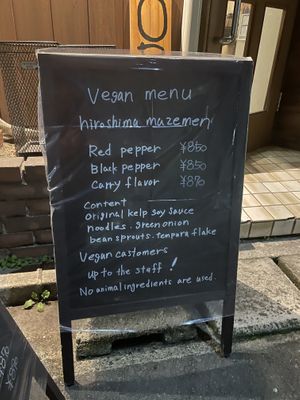 Vegan menu
hiroshima mazemen
Red pepper ¥850
Black pepper ¥850
Carry flavor ¥890
Content
original kelp soy sauce
noodles. Green onion
bean sprouts. Tenpura flake
Vegan castomers
up to the staff!
No animal ingredients are used.